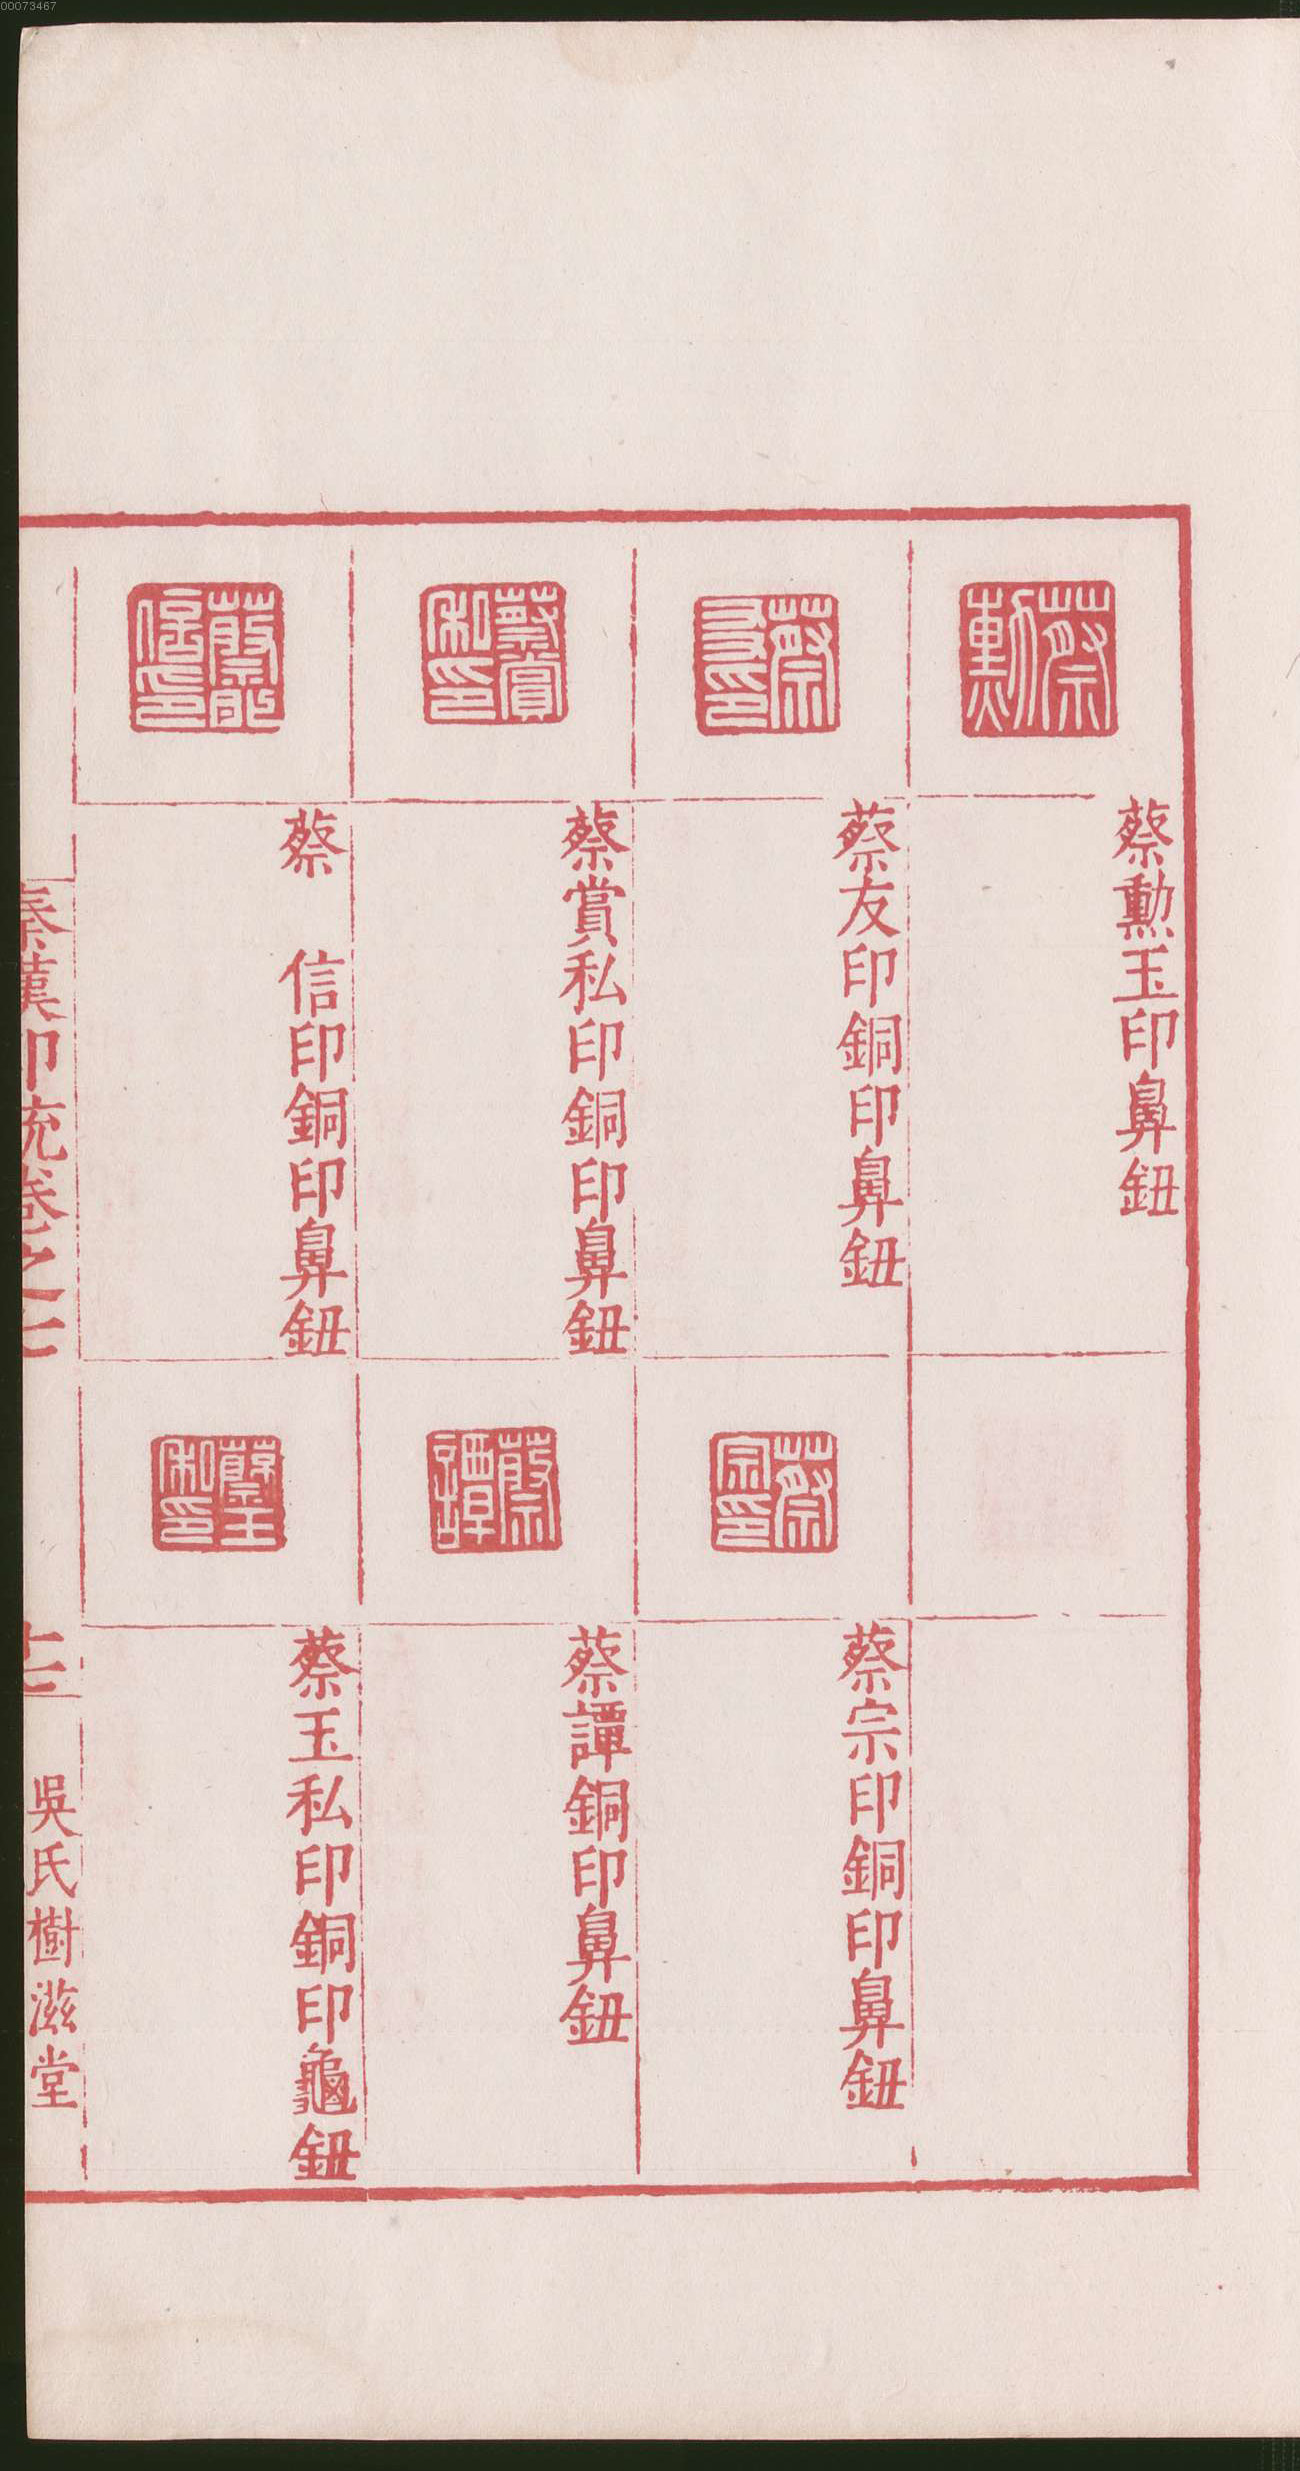 00073467
蔡勳
蔡勳玉印鼻鈕
蔡友印
蔡友印銅印鼻鈕
蔡宗印
蔡宗印銅印鼻鈕
蔡賞私印
蔡賞私印銅印鼻鈕
蔡譚
蔡譚銅印鼻鈕
蔡信印
蔡 信印銅印鼻鈕
蔡玉私印
蔡玉私印銅印龜鈕
秦漢印統卷之七
十二
吳氏樹滋堂